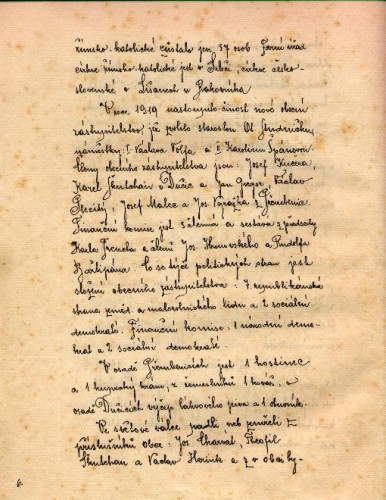 římsko-katolické zůstalo jen 37 osob. Farní úřad
církve římsko-katolické jest v Srbči, církve česko-
slovenské v Lišanech u Rakovníka
V roce 1919 nastoupilo činost nové obecní
zastupitelstvo již zvolilo starostou Ot. Studničku,
náměstky: I Václava Volfa a II Karolinu Španovou
členy obecního zastupitelstva jsou: Josef Kucera,
Karel Škutchan v Dučic a Jan Václav
Josef Malec a Jos z
Finanční komise jest 3 členná a sestává z předsedy
Karla a členů Jos. a Rudolfa
Co se týče politických stran jest
složení obecního zastupitelstva: 7 republikánská
strana zeměd. a malorolnického lidu a 2 sociální
demokraté. Finanční komise: 1 národní demo-
krat a 2 sociální demokraté.
V osadě jest 1 hostinec
a 1 kupecký krám, z řemeslníků 1 kovář, v
osadě Dučicích výčep lahvového piva a 1 obuvník.
Ve světové válce padli neb zemřeli z
příslušníků obce: Jos Charvat, Teofil
Škutchan a Václav Horink a z v obci by-
6.